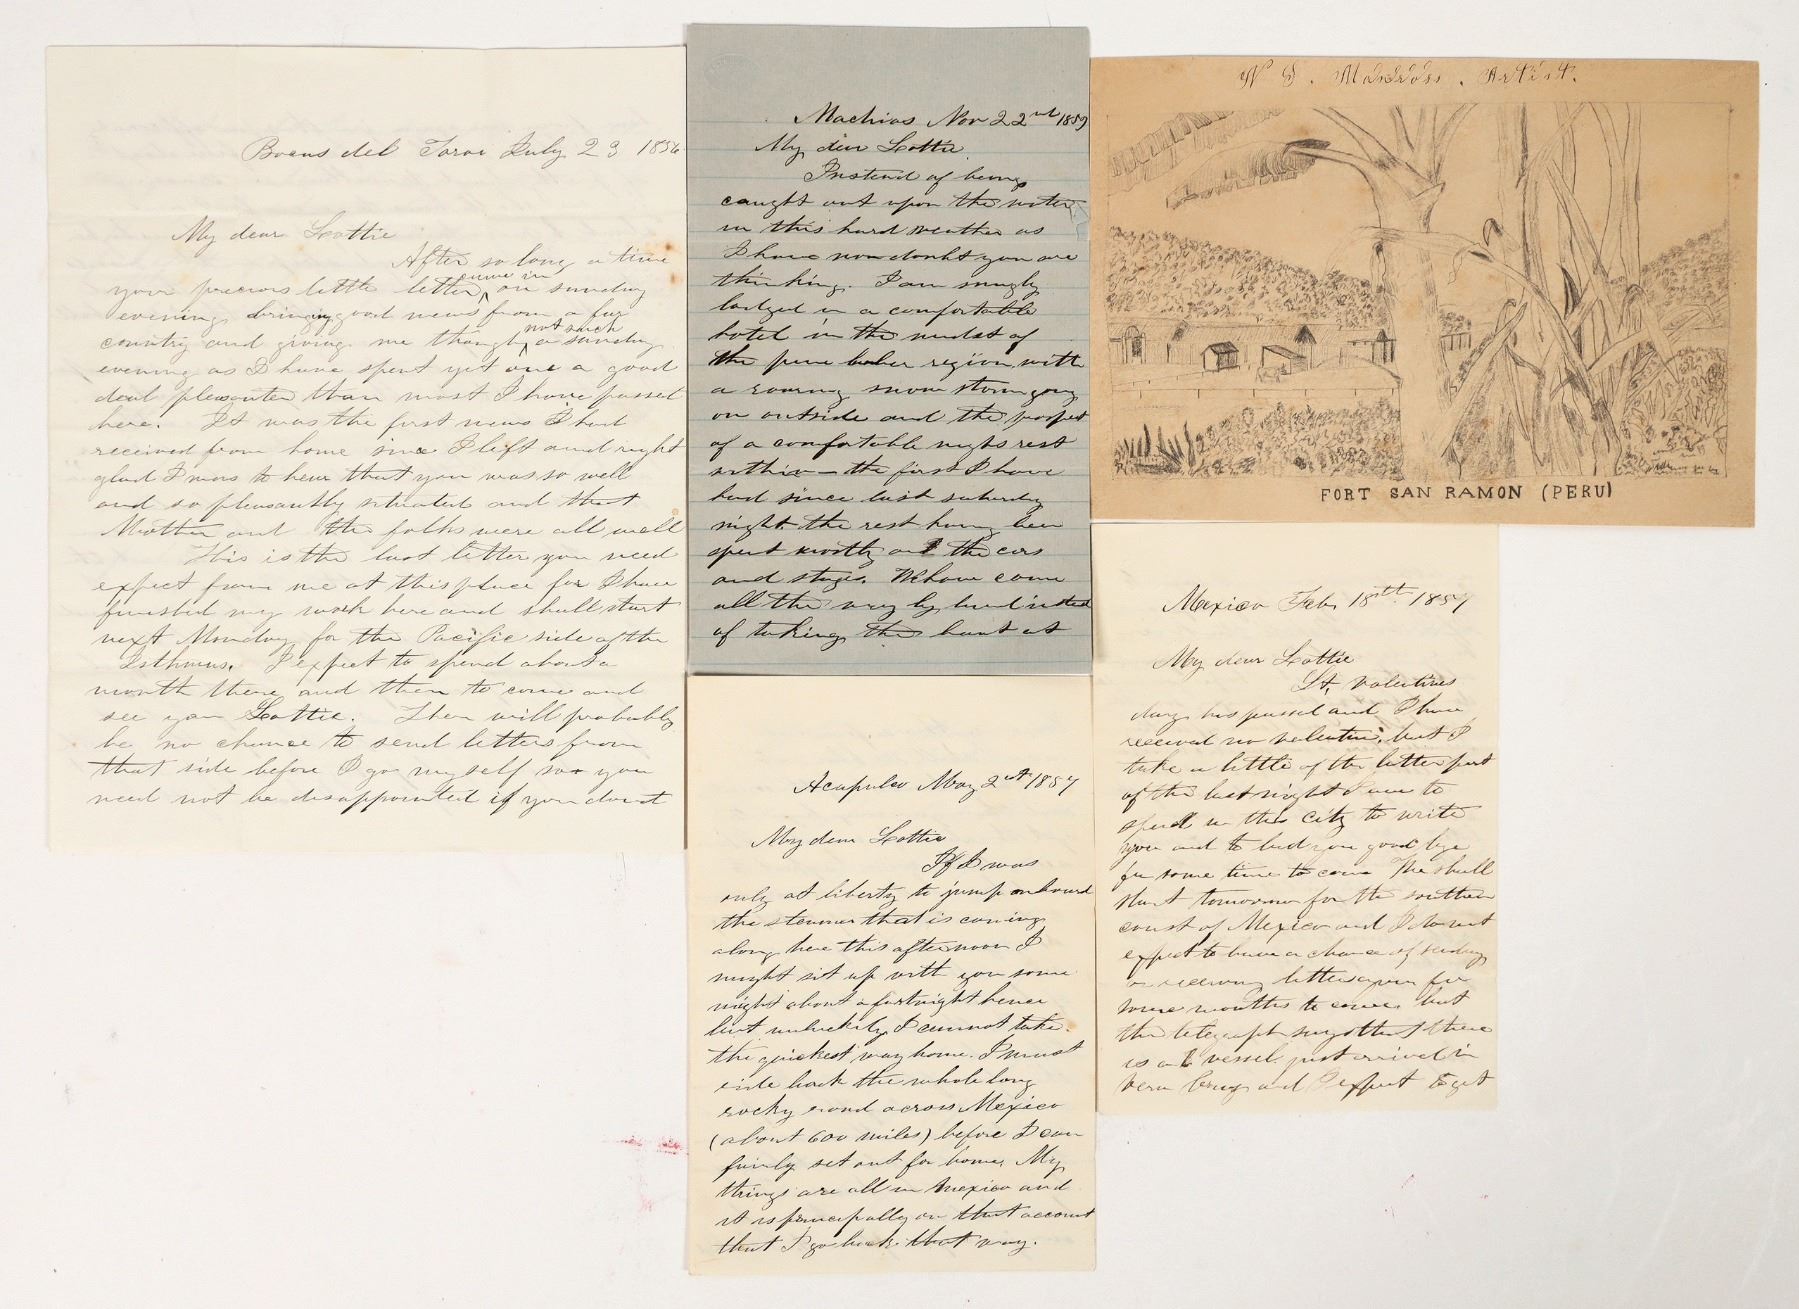 Bocas del Toro July 23 1856
My dear Lottie
After so long a time
your precious little letter came in on sunday
evening bringing good news from a far
country and giving me though not such a sunday
evening as I have spent yet one a good
deal pleasanter than most I have passed
here. It was the first news I had
received from home since I left and right
glad I was to hear that you was so well
and so pleasantly situated and that
Mother and the folks were all well
This is the last letter you need
expect from me at this place for I have
finished my work here and shall start
next Monday for the Pacific side of the
Isthmus. I expect to spend about a
month there and then to come and
see you Lottie. There will probably
be no chance to send letters from
that side before I go myself so you
need not be disappointed if you dont
Machias Nov 22nd 1859
My dear Lottie
Instead of being
caught out upon the water
in this hard weather as
I have now doubt you are
thinking. I am snugly
lodged in a comfortable
hotel in the midst of
the pine region with
a roaring snow storm going
on outside and the prospect
of a comfortable nights rest
within — the first I have
had since last saturday
night the rest having been
spent mostly on the cars
and stages. We have come
all the way by land instead
of taking the boat at
N S. Manross. Artist.
FORT SAN RAMON (PERU)
Mexico Feb. 18th 1857
My dear Lottie
St, Valentines
day has passed and I have
received no valentine, but I
take a little of the latter part
of the last night I am to
spend in this city to write
you and to bid you good bye
for some time to come We shall
start tomorrow for the southern
coast of Mexico and I do not
expect to have a chance of sending
or receiving letters again for
some months to come, but
the telegraph says that there
is a vessel just arrived in
Vera Cruz and I expect to get
Acapulco May 2nd 1857
My dear Lottie
If I was
only at liberty to jump onboard
the steamer that is coming
along here this afternoon I
might sit up with you some
night about a fortnight hence
but unluckily I cannot take
the quickest way home. I must
ride back the whole long
rocky road across Mexico
(about 600 miles) before I can
fairly set out for home. My
things are all in Mexico and
it is principally on that account
that I go back that way.